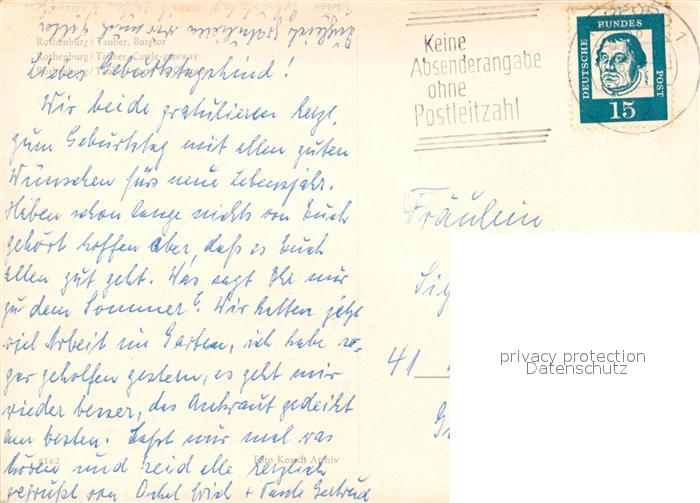 Rothenburg / Tauber, Burgtor
Rothenburg / Tauber, Castle-gateway
Rothenburg / Tauber
Liebes Geburtstagskind!
Wir beide gratulieren herzl.
zum Geburtstag mit allen guten
Wünschen fürs neue Lebensjahr.
Haben schon lange nichts von Euch
gehört hoffen aber, daß es Euch
allen gut geht. Was sagt Ihr nur
zu dem Sommer? Wir hatten jetzt
viel Arbeit im Garten, ich habe so-
gar geholfen gestern, es geht mir
wieder besser, das Unkraut gedeiht
am besten. Laßt nur mal was
hören und seid alle herzlich
gegrüßt von Onkel Erich + Tante Gertrud
4162
Foto Korndt Archiv
Keine
Absenderangabe
ohne
Postleitzahl
DEUTSCHE
BUNDES
POST
15
1
Fräulein
Sig
41
privacy protection
Datenschutz